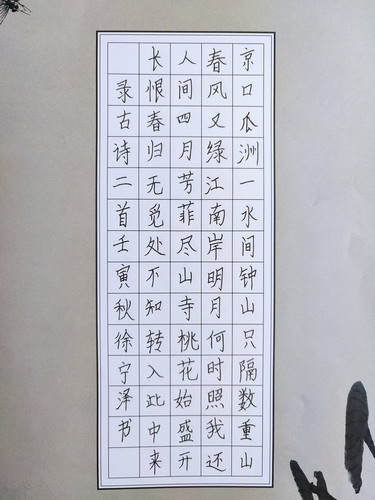 京口瓜洲一水间钟山只隔数重山
春风又绿江南岸明月何时照我还
人间四月芳菲尽山寺桃花始盛开
长恨春归无觅处不知转入此中来
录古诗二首壬寅秋徐宁泽书